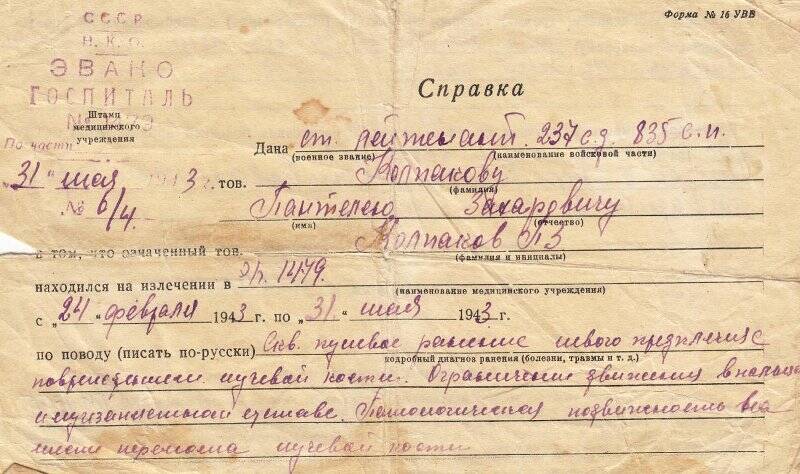 Форма № 16 УВВ
СССР
Н. К. О.
ЭВАКО
ГОСПИТАЛЬ
№
Штамп
медицинского
учреждения
По части
„31" мая 1943 г.
№ 6/4.
Справка
Дана ст. лейтенант. 237 с.д. 835 с.п.
(военное звание) (наименование войсковой части)
тов. Колпакову
(фамилия)
Пантелею Захаровичу
(имя) (отчество)
в том, что означенный тов. Колпаков ПЗ
(фамилия и инициалы)
находился на излечении в 1479.
(наименование медицинского учреждения)
с „24" февраля 1943 г. по „31" мая 1943 г.
по поводу (писать по-русски) Скв. пулевое ранение левого предплечия с
подробный диагноз ранения (болезни, травмы и т. д.)
повреждением лучевой кости. Ограничение движения в пальцах
и лучезапястном суставе. Патологическая подвижность в
перелома лучевой кости